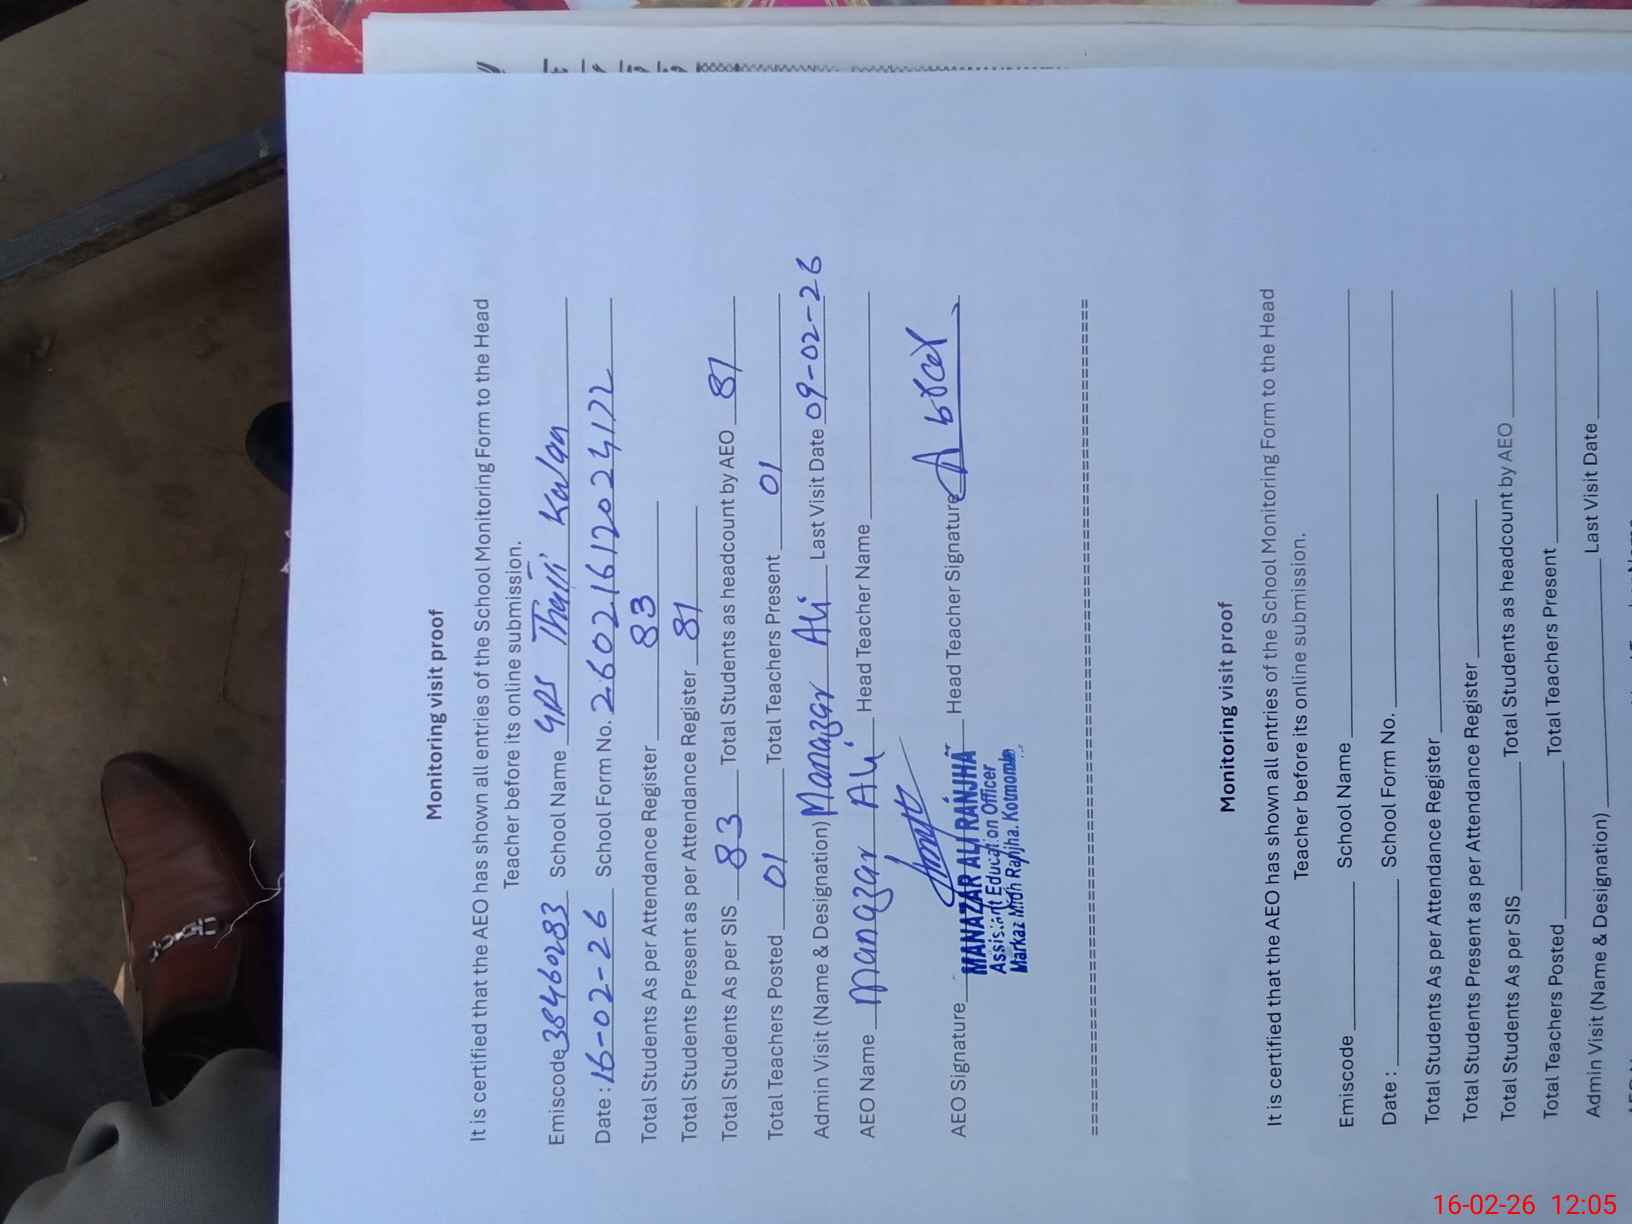 Monitoring visit proof
It is certified that the AEO has shown all entries of the School Monitoring Form to the Head
Teacher before its online submission.
Emiscode 38460283 School Name GPS Thatti Kalan
Date : 16-02-26 School Form No. 26021612024172
Total Students As per Attendance Register 83
Total Students Present as per Attendance Register 81
Total Students As per SIS 83 Total Students as headcount by AEO 81
Total Teachers Posted 01 Total Teachers Present 01
Admin Visit (Name & Designation) Manazar Ali Last Visit Date 09-02-26
AEO Name Manazar Ali Head Teacher Name
AEO Signature Head Teacher Signature
MANAZAR ALI RANJHA
Assistant Education Officer
Markaz Midh Ranjha. Kotmomin
Monitoring visit proof
It is certified that the AEO has shown all entries of the School Monitoring Form to the Head
Teacher before its online submission.
Emiscode School Name
Date : School Form No.
Total Students As per Attendance Register
Total Students Present as per Attendance Register
Total Students As per SIS Total Students as headcount by AEO
Total Teachers Posted Total Teachers Present
Admin Visit (Name & Designation) Last Visit Date
16-02-26 12:05